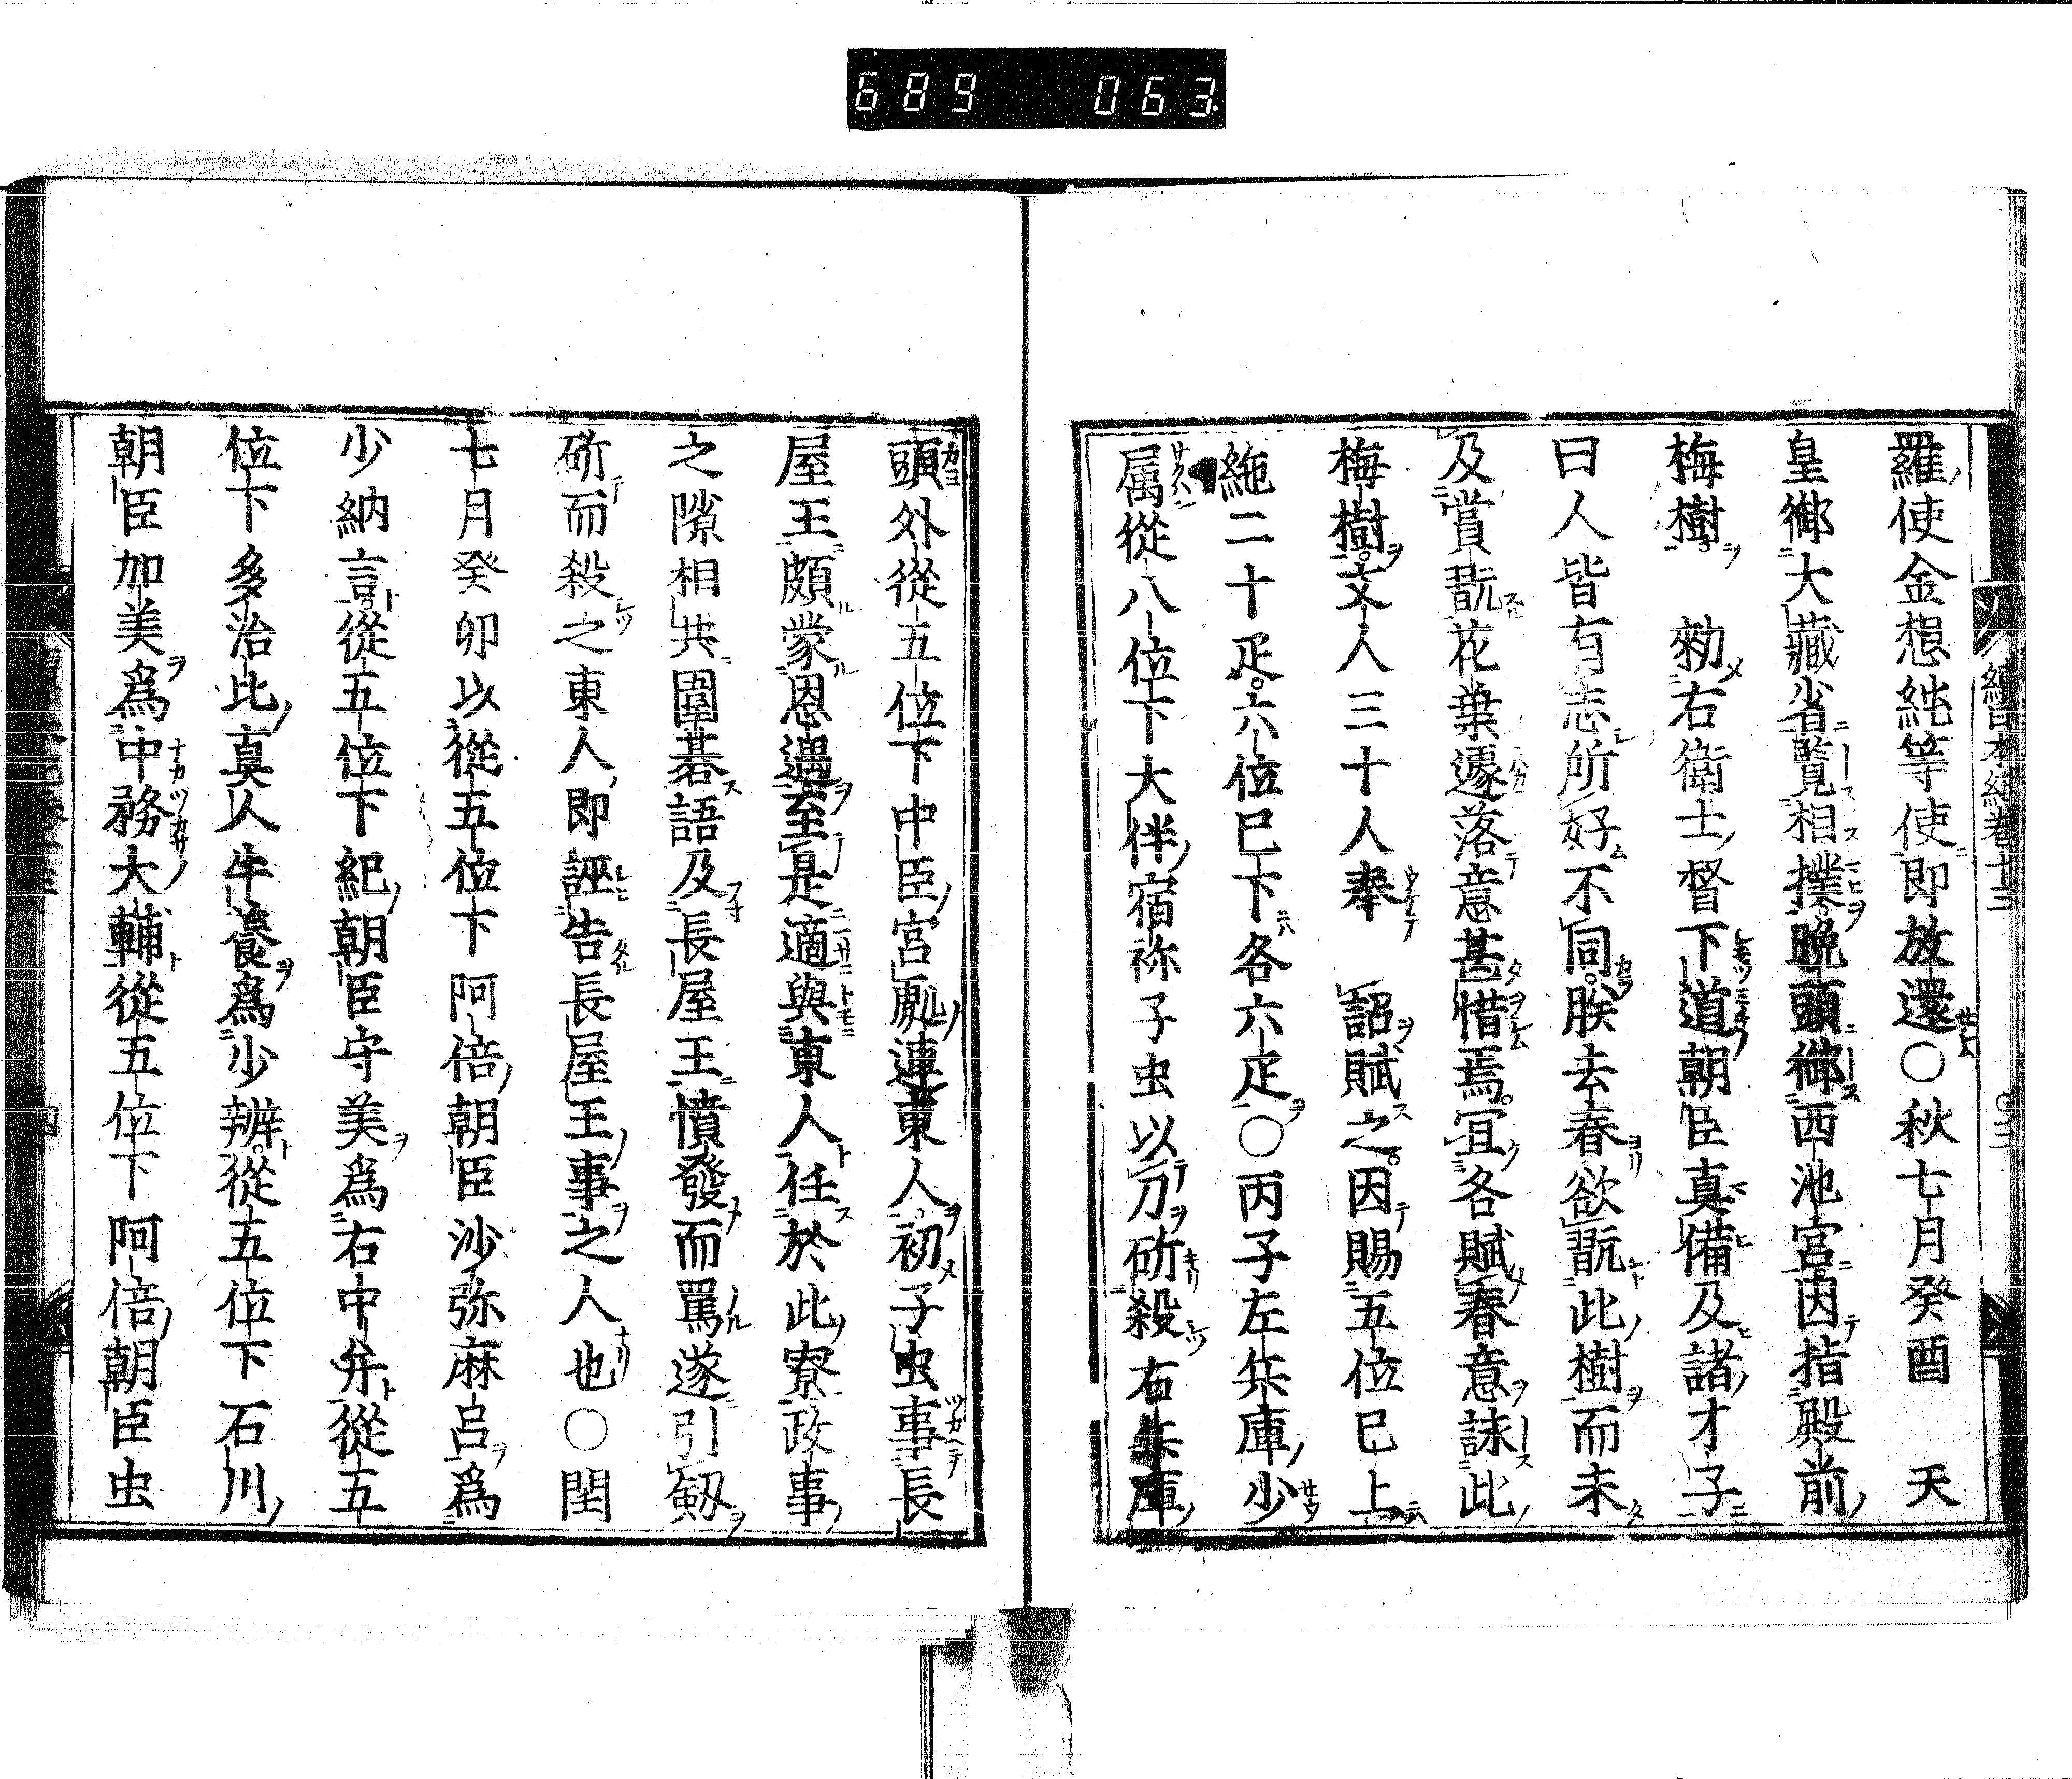 689 063
續日本紀卷十三
羅使金想純等使即放還○秋七月癸酉 天
皇御大藏省覧相撲晩頭御西池宮因指殿前
梅樹 勑右衛士督下道朝臣真備及諸才子
曰人皆有志所好不同朕去春欲翫此樹而未
及賞翫花葉遽落意甚惜焉宜各賦春意詠此
梅樹文人三十人奉 詔賦之因賜五位巳上
絁二十疋六位巳下各六疋○丙子左兵庫少
属從八位下大伴宿祢子虫以刀斫殺右兵庫
頭外從五位下中臣宮處連東人初子虫事長
屋王頗蒙恩遇至是適與東人任於此寮政事
之隙相共圍碁語及長屋王憤發而罵遂引劔
斫而殺之東人即誣告長屋王事之人也○閏
七月癸卯以從五位下阿倍朝臣沙弥麻呂爲
少納言從五位下紀朝臣守美爲右中弁從五
位下多治比真人牛養爲少辨從五位下石川
朝臣加美爲中務大輔從五位下阿倍朝臣虫